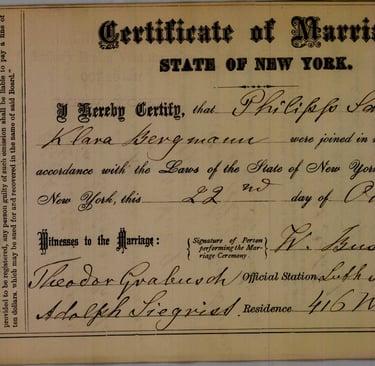 Certificate of Marri
STATE OF NEW YORK.
I Hereby Certify, that Philipp Sa
Klara Bergmann were joined in
accordance with the Laws of the State of New York
New York, this 22nd day of
Witnesses to the Marriage: Signature of Person performing the Marriage Ceremony. W. Bus
Theodor Grabusch Official Station, Luth
Adolph Siegrist Residence 416 W
provided to be registered, any person guilty of such omission shall be liable to pay a fine of
ten dollars, which may be sued for and recovered in the name of said Board."